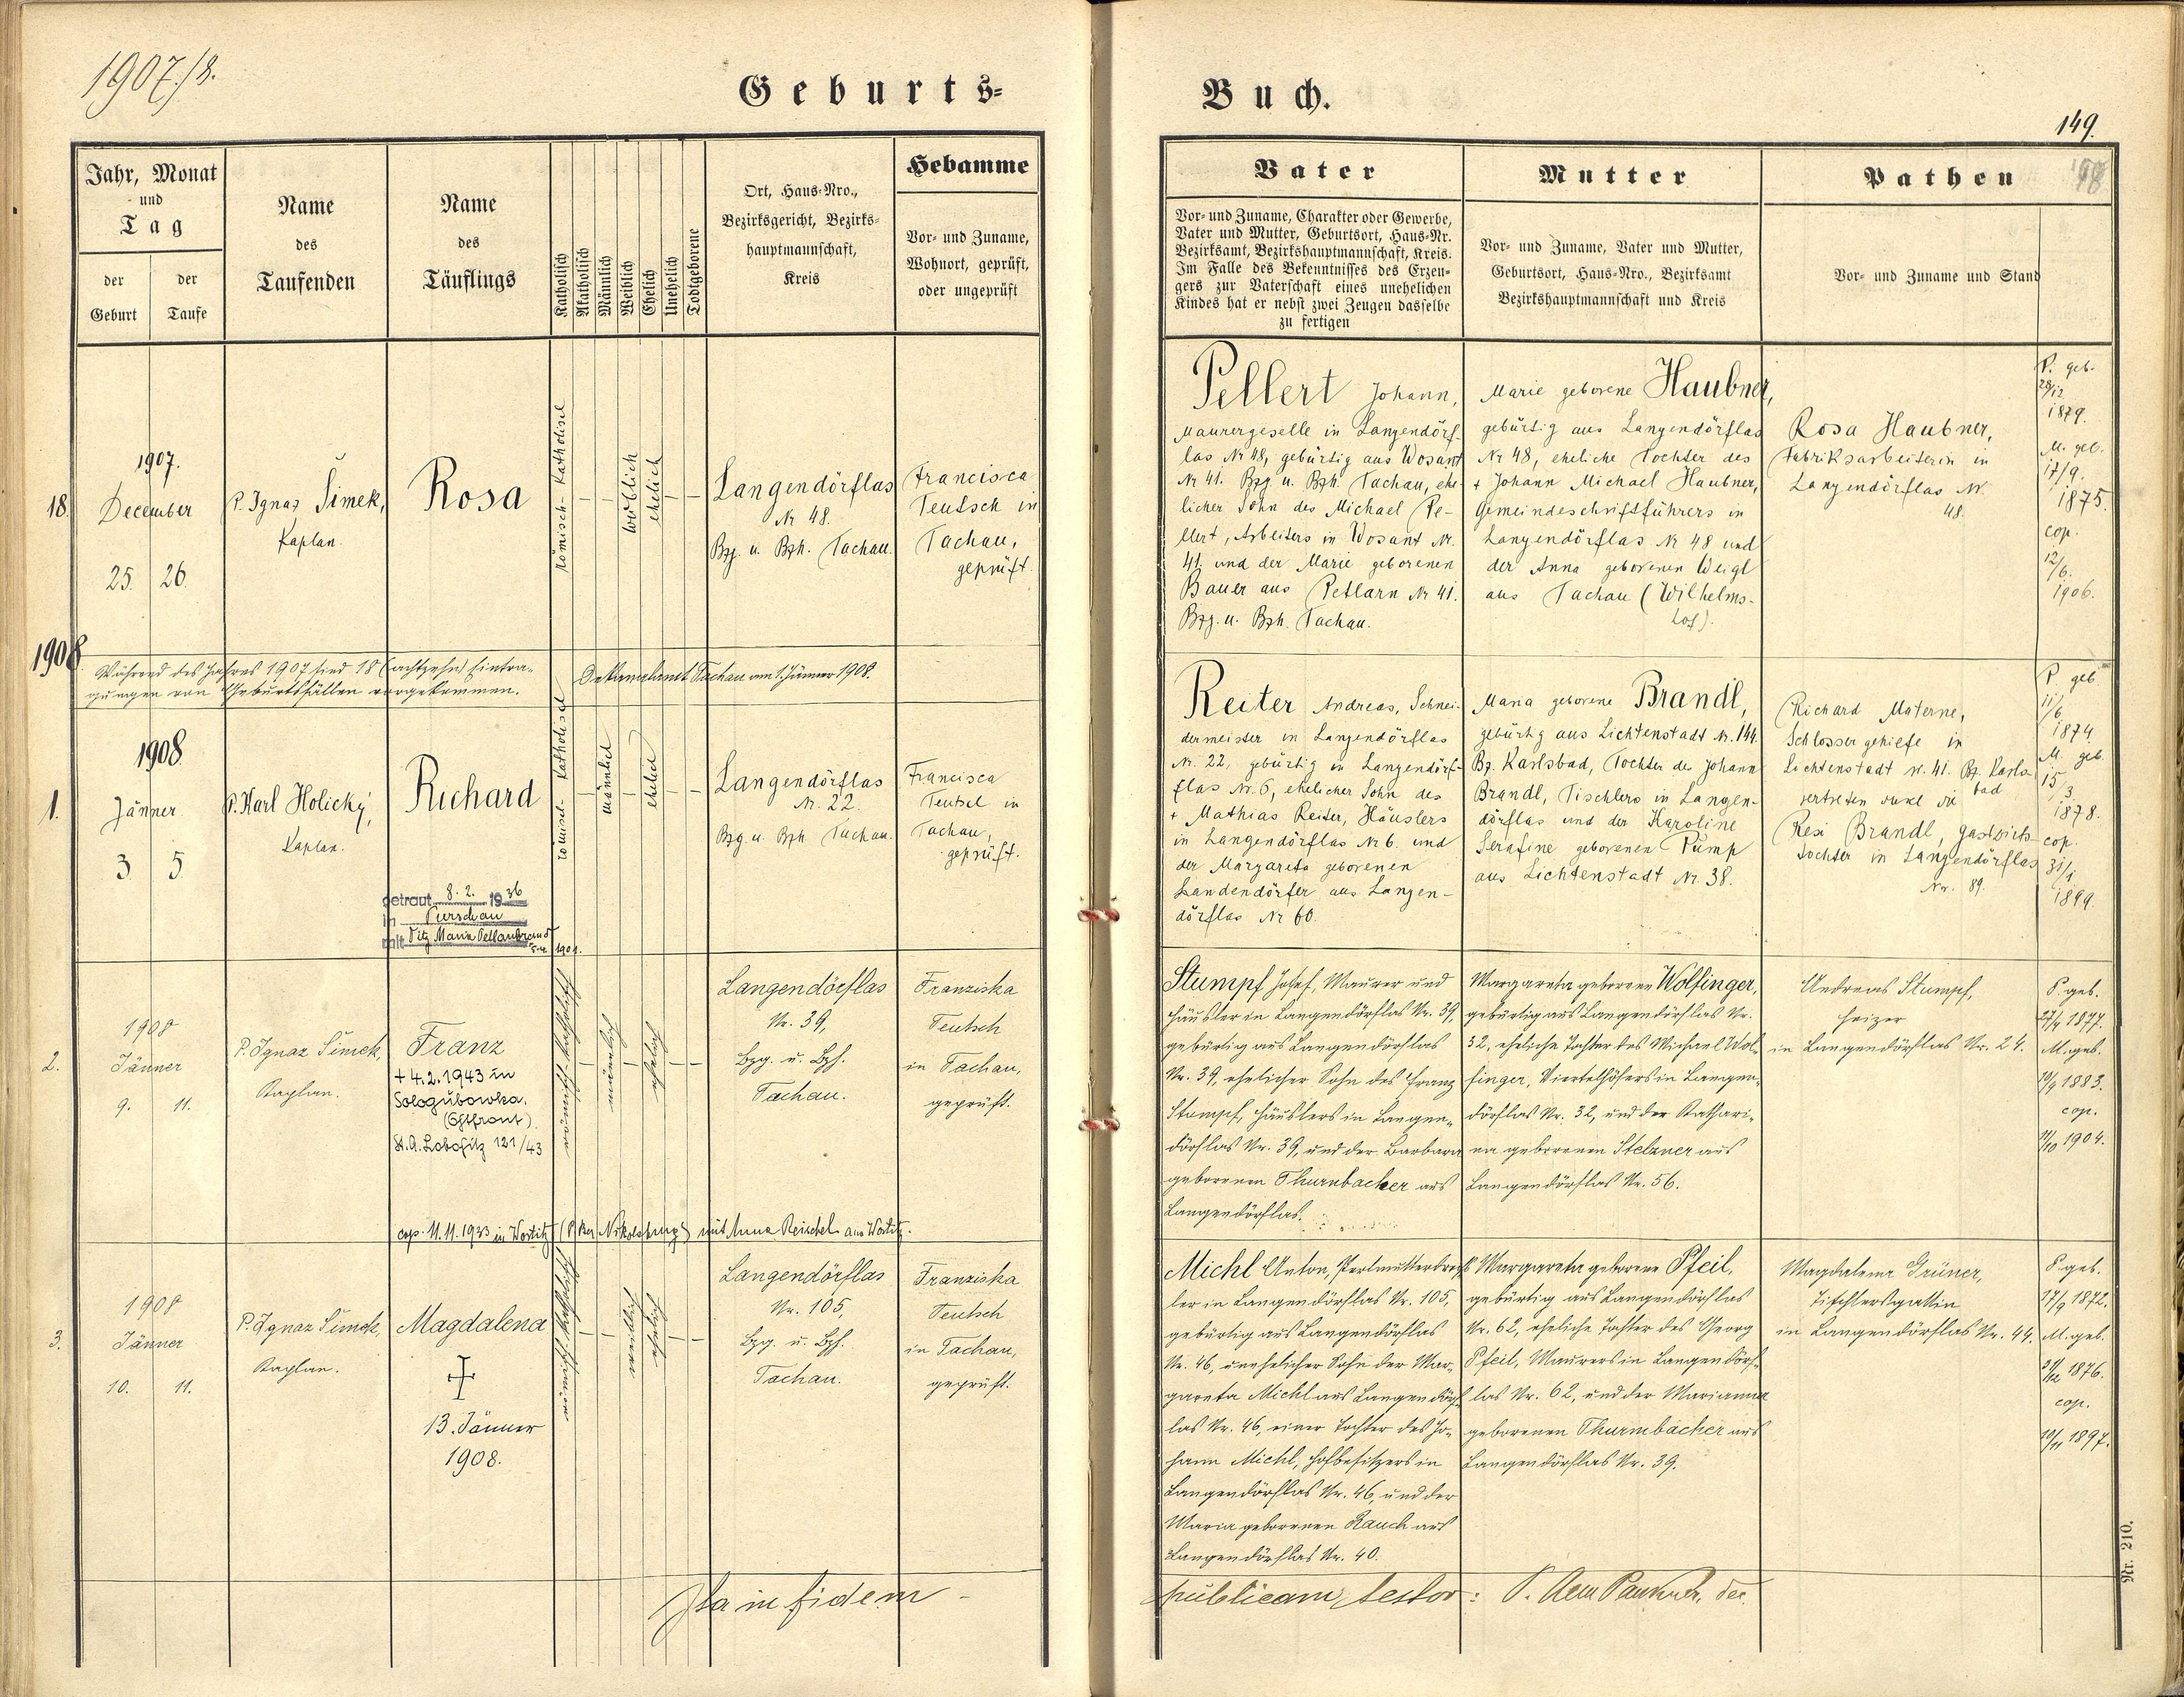 1907/8.
Geburts-
Jahr, Monat
und
Tag
der
Geburt
der
Taufe
Name
des
Taufenden
Name
des
Täuflings
Katholisch
Akatholisch
Männlich
Weiblich
Ehelich
Unehelich
Todtgeborene
Ort, Haus-Nro.,
Bezirksgericht, Bezirks-
hauptmannschaft,
Kreis
Hebamme
Vor- und Zuname,
Wohnort, geprüft,
oder ungeprüft
18.
1907.
December
25. 26.
P. Ignaz Šimek,
Kaplan.
Rosa
Römisch-Katholisch
weiblich
ehelich
Langendörflas
Nr 48.
Bzg. u. Bzh. Tachau.
Francisca
Teutsch in
Tachau,
geprüft.
1908.
Während des Jahres 1907 sind 18 (achtzehn) Eintra-
gungen von Geburtsfällen vorgekommen.
Dekanalamt Tachau am 1. Jänner 1908.
1.
1908
Jänner
3 5.
P. Karl Holický,
Kaplan.
Richard
getraut 8. 2. 1936
in Purschau
mit
römisch-katholisch
männlich
ehelich
Langendörflas
Nr. 22
Bzg u. Bzh Tachau.
Francisca
Teutsch in
Tachau,
geprüft.
2.
1908
Jänner
9. 11.
P. Ignaz Šimek,
Kaplan.
Franz
+ 4.2.1943 in
Sologubowka.
(Ostfront)
St. A. Lobositz 121/43
cop. 11.11.1933 in Wostitz mit Anna Reischel aus Wostitz.
römisch-katholisch
männlich
ehelich
Langendörflas
Nr. 39,
Bzg. u. Bzh.
Tachau.
Franziska
Teutsch
in Tachau,
geprüft.
3.
1908
Jänner
10. 11.
P. Ignaz Šimek,
Kaplan.
Magdalena
13. Jänner
1908.
römisch-katholisch
weiblich
ehelich
Langendörflas
Nr. 105,
Bzg. u. Bzh.
Tachau.
Franziska
Teutsch
in Tachau,
geprüft.
Ita in fidem
Buch.
149.
Vater
Vor- und Zuname, Charakter oder Gewerbe,
Vater und Mutter, Geburtsort, Haus-Nr.
Bezirksamt, Bezirkshauptmannschaft, Kreis.
Im Falle des Bekenntnisses des Erzeu-
gers zur Vaterschaft eines unehelichen
Kindes hat er nebst zwei Zeugen dasselbe
zu fertigen
Mutter
Vor- und Zuname, Vater und Mutter,
Geburtsort, Haus-Nro., Bezirksamt
Bezirkshauptmannschaft und Kreis
Pathen
Vor- und Zuname und Stand
Pellert Johann,
Maurergeselle in Langendörf-
las Nr 48, gebürtig aus Wosant
Nr 41. Bzg. u. Bzh. Tachau, ehe-
licher Sohn des Michael Pe-
llert, Arbeiters in Wosant Nr.
41. und der Marie geborenen
Bauer aus Petlarn Nr 41.
Bzg. u. Bzh. Tachau.
Marie geborene Haubner,
gebürtig aus Langendörflas
Nr 48, eheliche Tochter des
+ Johann Michael Haubner,
Gemeindeschriftführers in
Langendörflas Nr 48 und
der Anna geborenen Weigl
aus Tachau (Wilhelms-
hof).
Rosa Haubner,
Fabriksarbeiterin in
Langendörflas Nr.
48.
P. geb.
28/12
1879.
M. geb.
17/9.
1875.
cop.
12/6.
1906.
Reiter Andreas, Schnei-
dermeister in Langendörflas
Nr. 22, gebürtig in Langendörf-
flas Nr. 6, ehelicher Sohn des
+ Mathias Reiter, Häuslers
in Langendörflas Nr 6. und
der Margareta geborenen
Landendörfer aus Langen-
dörflas Nr 60.
Maria geborene Brandl,
gebürtig aus Lichtenstadt Nr. 144.
Bz. Karlsbad, Tochter des Johann
Brandl, Tischlers in Langen-
dörflas und der Karoline
Serafine geborenen Pump
aus Lichtenstadt Nr. 38.
Richard Materne,
Schlossergehilfe in
Lichtenstadt N. 41. Bz. Karls-
bad
vertreten durch die
Resi Brandl, Gastwirts-
tochter in Langendörflas
Nr. 89.
P. geb
11/6
1874
M. geb
15/3.
1878.
cop.
31/1
1899.
Stumpf Josef, Maurer und
Häusler in Langendörflas Nr. 39,
gebürtig aus Langendörflas
Nr. 39, ehelicher Sohn des Franz
Stumpf, Häuslers in Langen-
dörflas Nr. 39, und der Barbara
geborenen Thurnbacher aus
Langendörflas.
Margareta geborene Wolfinger,
gebürtig aus Langendörflas Nr.
32, eheliche Tochter des Michael Wol-
finger, Viertelhöfers in Langen-
dörflas Nr. 32, und der Kathari-
na geborenen Stelzner aus
Langendörflas Nr. 56.
Andreas Stumpf,
Heizer
in Langendörflas Nr. 24.
P. geb.
1877.
M. geb.
10/9 1883.
cop.
11/10 1904.
Michl Anton, Perlmutterdrechs-
ler in Langendörflas Nr. 105,
gebürtig aus Langendörflas
Nr. 46, unehelicher Sohn der Mar-
gareta Michl aus Langendörf-
las Nr. 46, einer Tochter des Jo-
hann Michl, Hofbesitzers in
Langendörflas Nr. 46, und der
Maria geborenen Rauch aus
Langendörflas Nr. 40.
Margareta geborene Pfeil,
gebürtig aus Langendörflas
Nr. 62, eheliche Tochter des Georg
Pfeil, Maurers in Langendörf-
las Nr. 62, und der Marianna
geborenen Thurmbacher aus
Langendörflas Nr. 39.
Magdalena Grüner,
Tischlersgattin
in Langendörflas Nr. 44.
P. geb.
17/9 1872.
M. geb.
1876.
cop.
1897.
publicam testor:
Nr. 210.